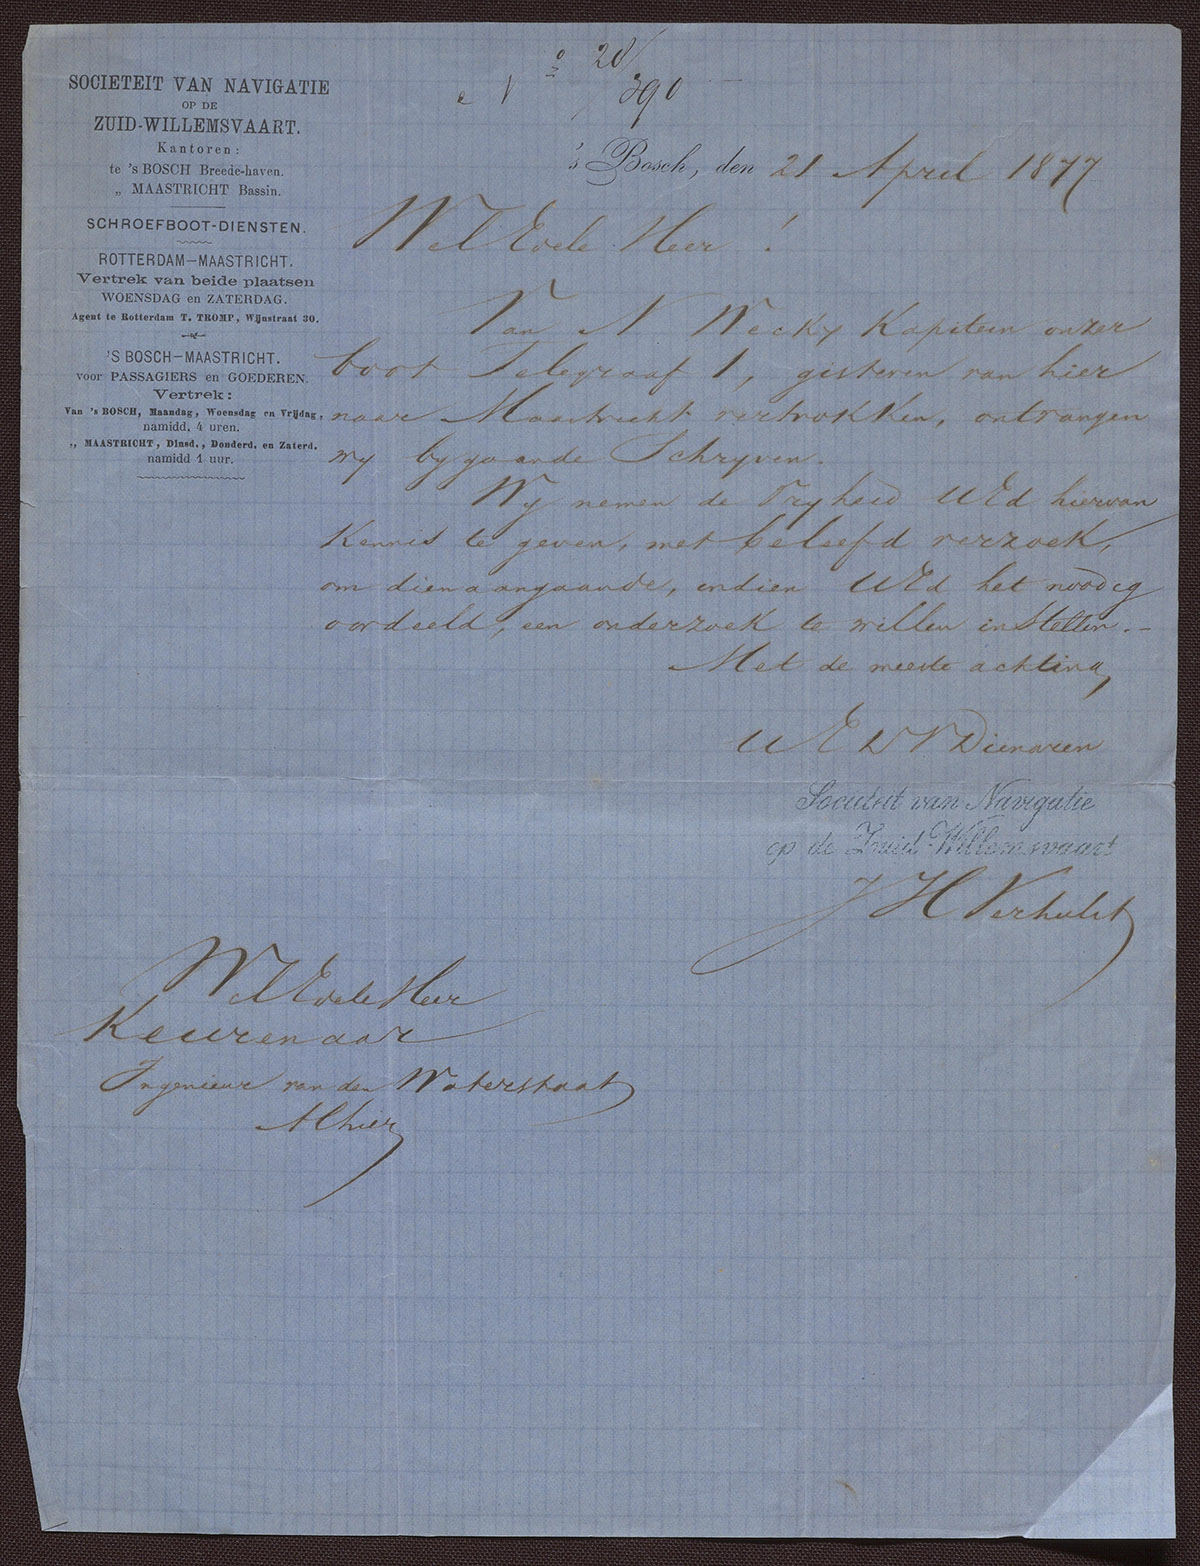 SOCIETEIT VAN NAVIGATIE
OP DE
ZUID-WILLEMSVAART.
Kantoren:
te 's BOSCH Breede-haven.
„ MAASTRICHT Bassin.
SCHROEFBOOT-DIENSTEN.
ROTTERDAM—MAASTRICHT.
Vertrek van beide plaatsen
WOENSDAG en ZATERDAG.
Agent te Rotterdam T. TROMP, Wijnstraat 30.
'S BOSCH—MAASTRICHT.
voor PASSAGIERS en GOEDEREN.
Vertrek:
Van 's BOSCH, Maandag, Woensdag en Vrijdag,
namidd. 4 uren.
„ MAASTRICHT, Dinsd., Donderd. en Zaterd.
namidd 1 uur.
No 28/390
's Bosch, den 21 April 1877
Wel Edele Heer!
Van N Wecky Kapitein onzer
boot Telegraaf 1, gisteren van hier
naar Maastricht vertrokken, ontvangen
wy bygaande Schryven.
Wy nemen de Vryheid UEd hiervan
Kennis te geven, met beleefd verzoek,
om dienaangaande, indien UEd het noodig
oordeeld, een onderzoek te willen instellen.—
Met de meeste achting,
UEDV Dienaren
Societeit van Navigatie
op de Zuid-Willemsvaart
J H Verhulst
Wel Edele Heer
Keurenaar
Ingenieur van den Waterstaat
Alhier